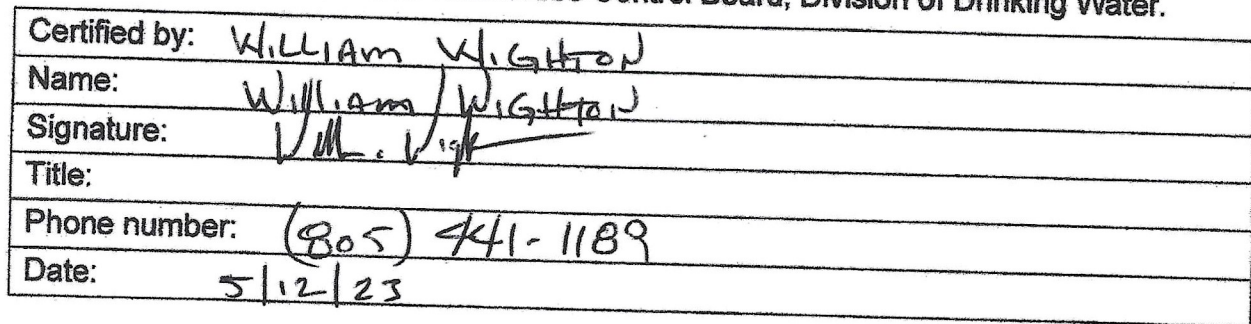 Control Board, Division of Drinking Water.
Certified by: WILLIAM WIGHTON
Name: WILLIAM WIGHTON
Signature:
Title:
Phone number: (805) 441-1189
Date: 5/12/23